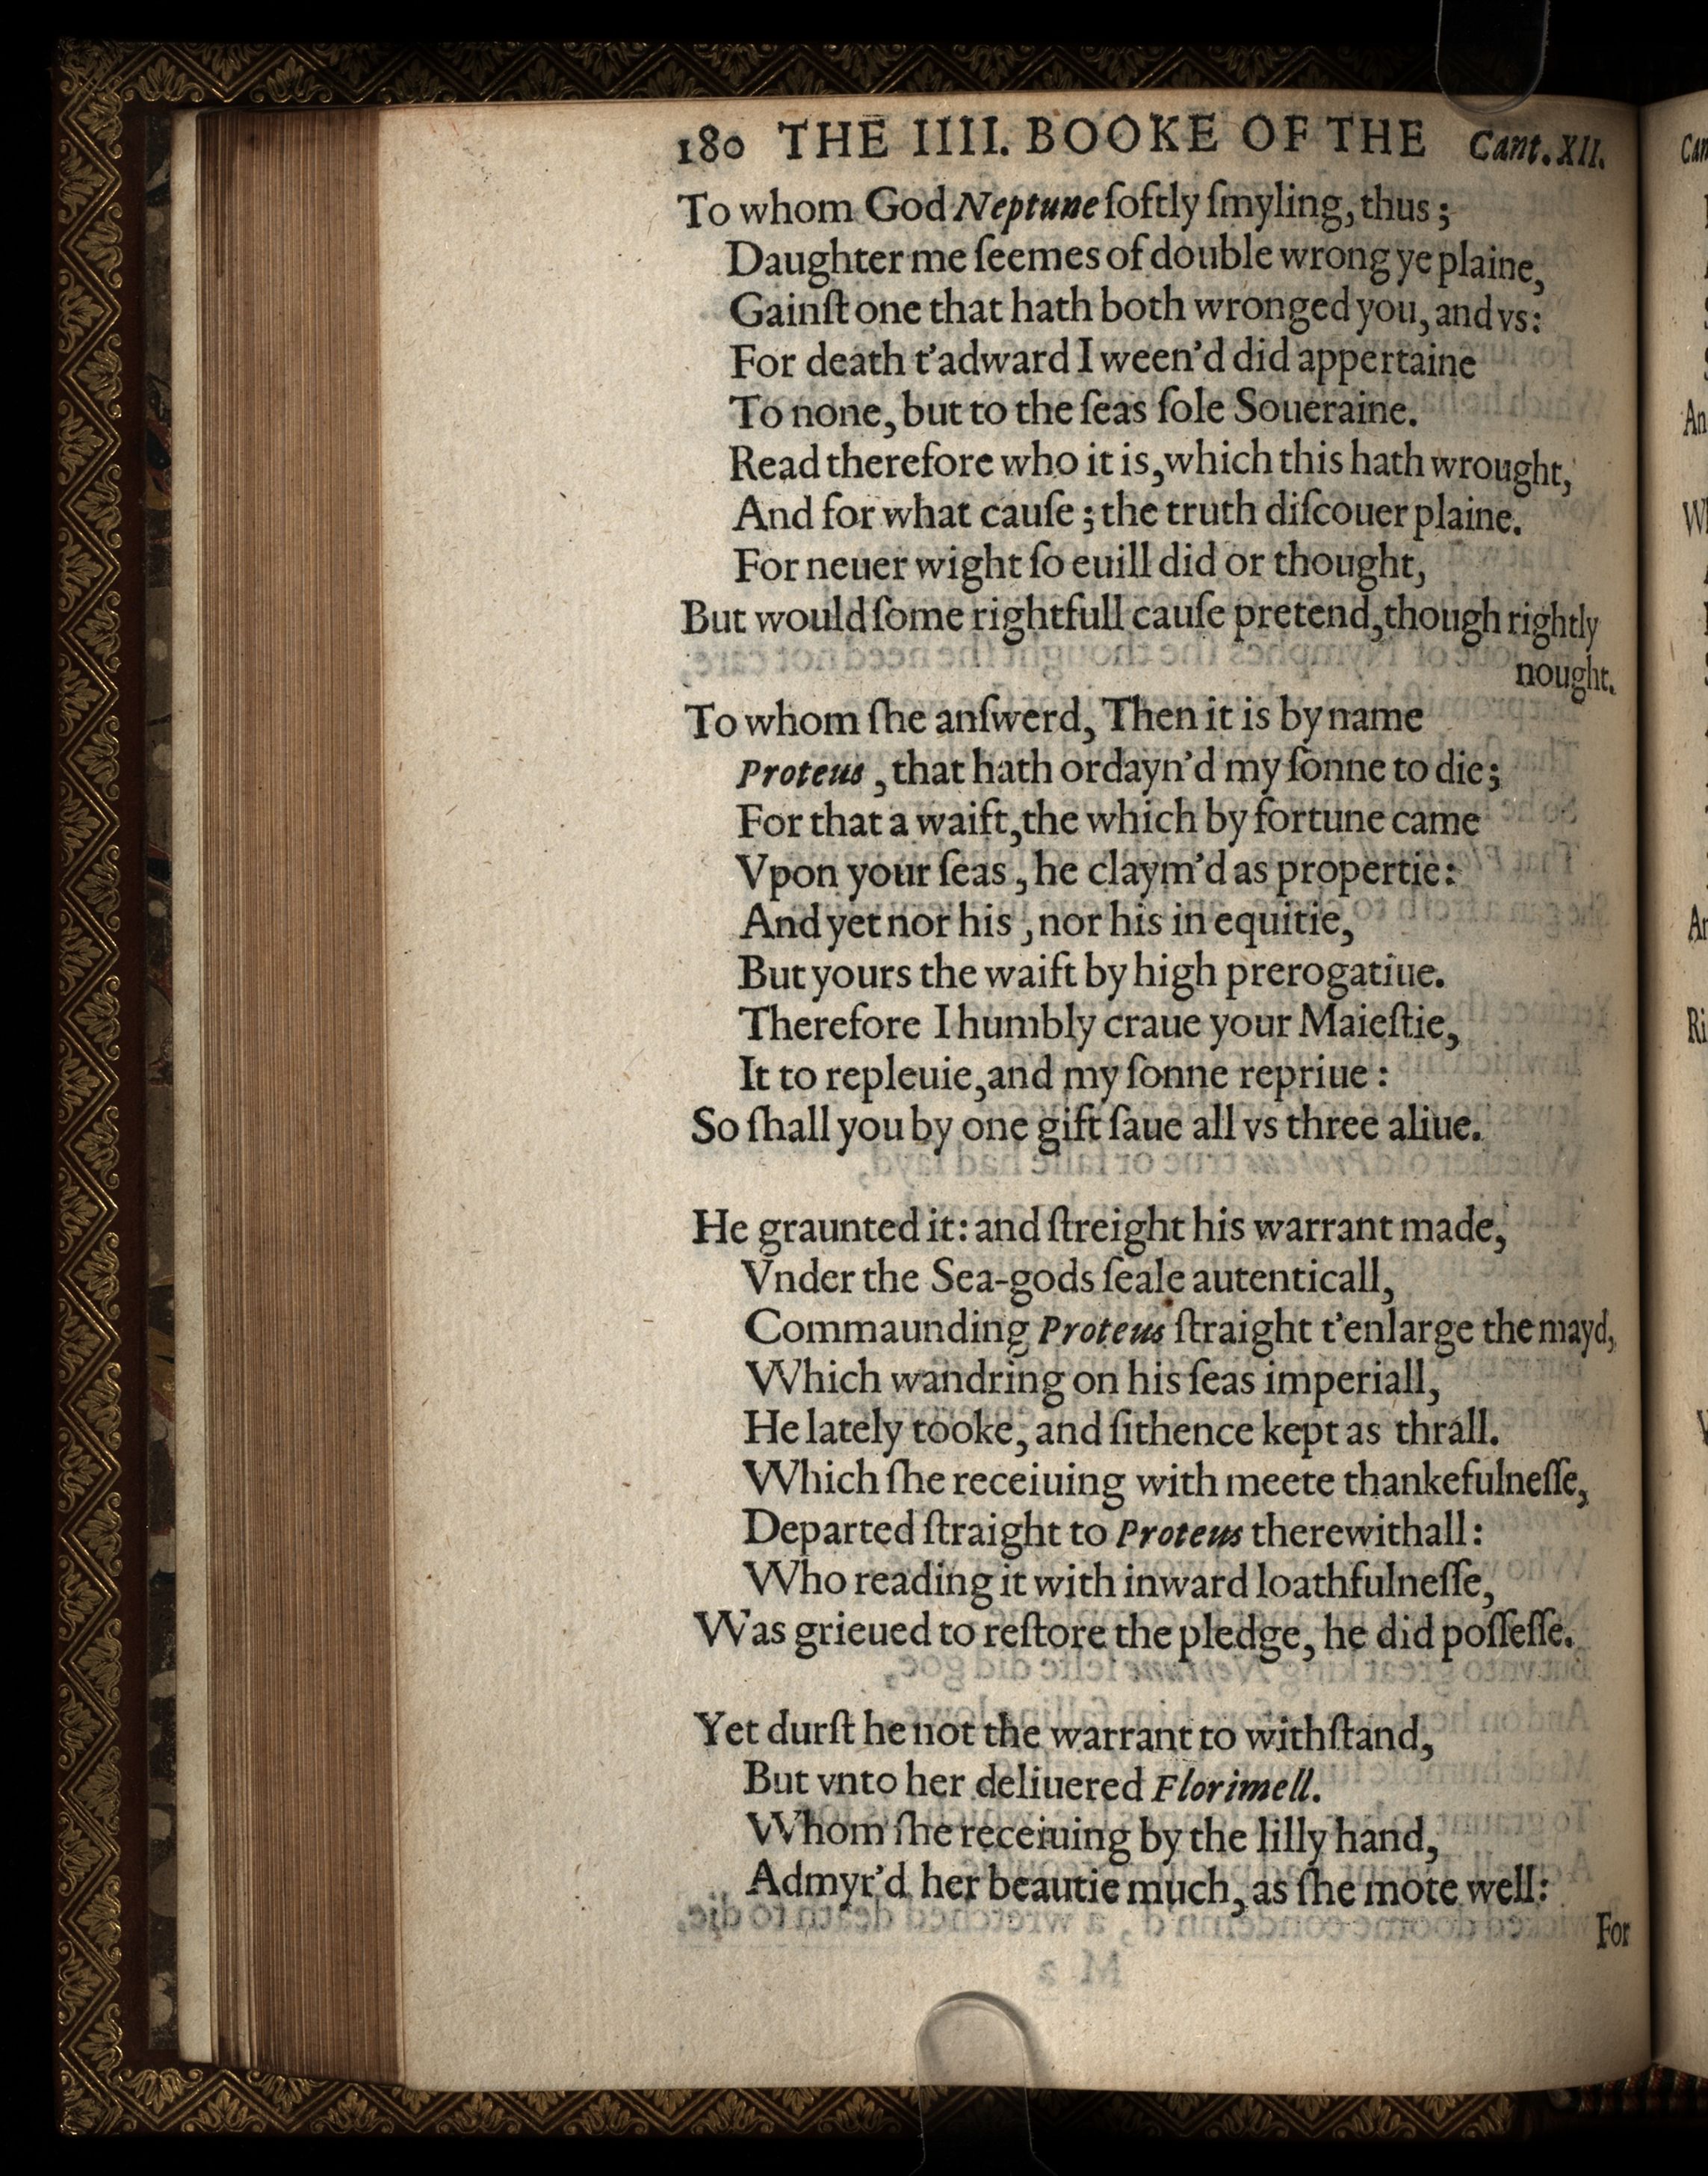 180 THE IIII. BOOKE OF THE Cant. XII.
To whom God Neptune ſoftly ſmyling, thus;
Daughter me ſeemes of double wrong ye plaine,
Gainſt one that hath both wronged you, and vs:
For death t'adward I ween'd did appertaine
To none, but to the ſeas ſole Soueraine.
Read therefore who it is, which this hath wrought,
And for what cauſe; the truth diſcouer plaine.
For neuer wight ſo euill did or thought,
But would ſome rightfull cauſe pretend, though rightly
nought.
To whom ſhe anſwerd, Then it is by name
Proteus, that hath ordayn'd my ſonne to die;
For that a waift, the which by fortune came
Vpon your ſeas, he claym'd as propertie:
And yet nor his, nor his in equitie,
But yours the waift by high prerogatiue.
Therefore I humbly craue your Maieſtie,
It to repleuie, and my ſonne repriue:
So ſhall you by one gift ſaue all vs three aliue.
He graunted it: and ſtreight his warrant made,
Vnder the Sea-gods ſeale autenticall,
Commaunding Proteus ſtraight t'enlarge the mayd,
Which wandring on his ſeas imperiall,
He lately tooke, and ſithence kept as thrall.
Which ſhe receiuing with meete thankefulneſſe,
Departed ſtraight to Proteus therewithall:
Who reading it with inward loathfulneſſe,
Was grieued to reſtore the pledge, he did poſſeſſe.
Yet durſt he not the warrant to withſtand,
But vnto her deliuered Florimell.
Whom ſhe receiuing by the lilly hand,
Admyr'd her beautie much, as ſhe mote well:
For